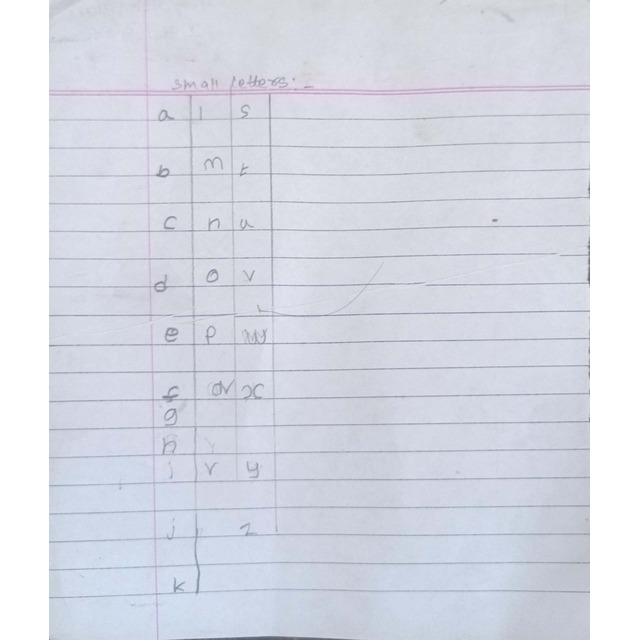 small letters:-
a l s
b m t
c n u
d o v
e p
f x
g
h
i r y
j z
k